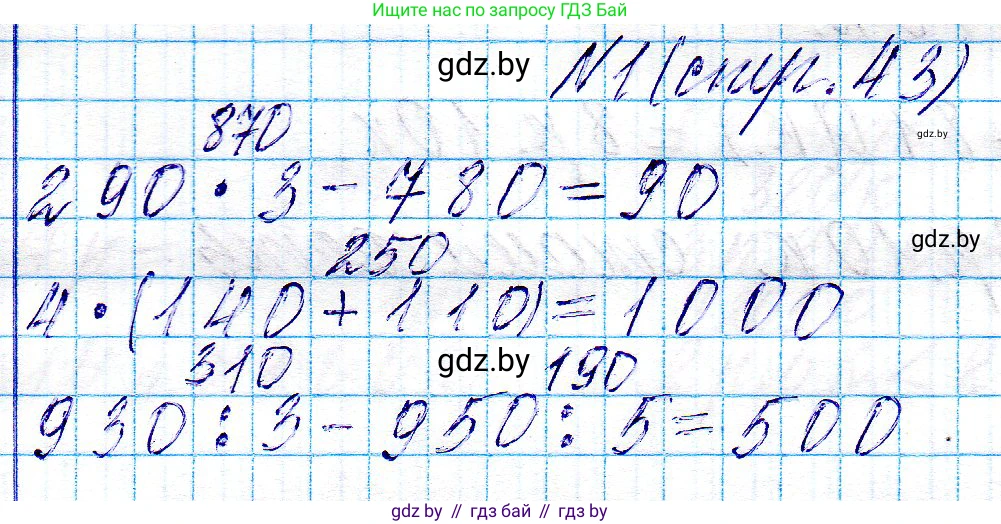 Ищите нас по запросу ГДЗ Бай
gdz.by
№1 (стр. 43)
gdz.by
870
290 · 3 - 780 = 90
gdz.by
250
4 · (140 + 110) = 1000
310 gdz.by 190
930 : 3 - 950 : 5 = 500
gdz.by // гдз бай // гдз by